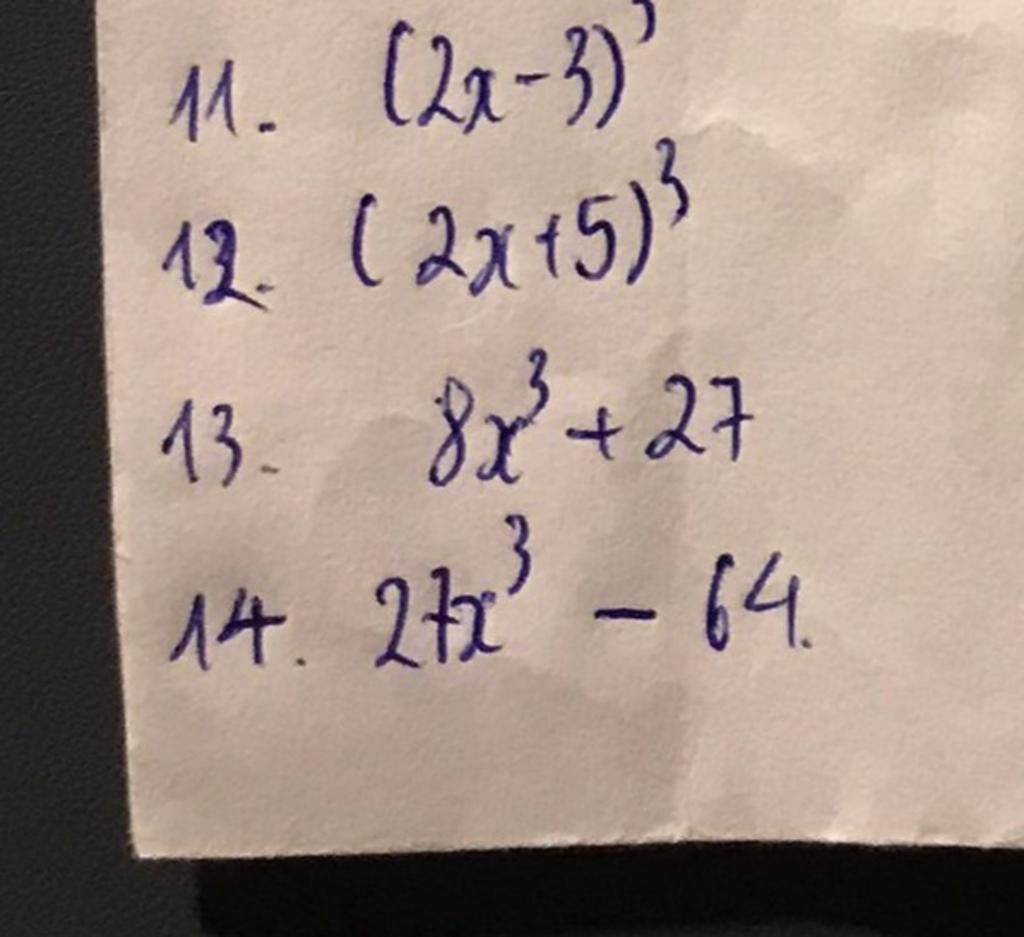 11. (2x-3)³
12. (2x+5)³
13. 8x³ + 27
14. 27x³ - 64.